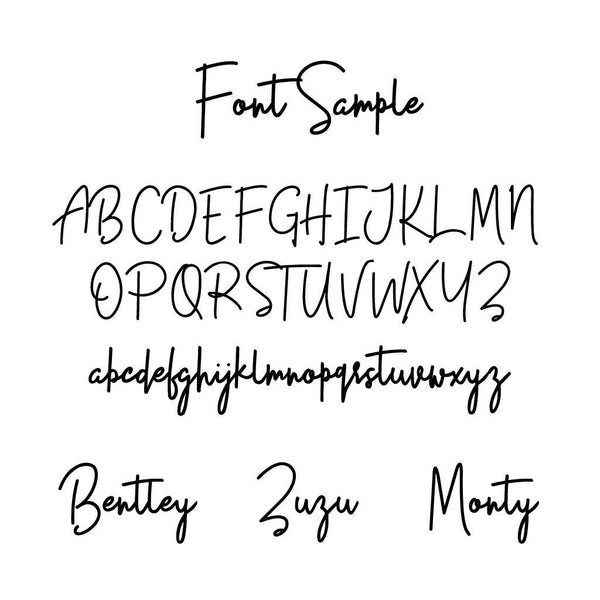 Font Sample
ABCDEFGHIJKLMN
OPQRSTUVWXYZ
abcdefghijklmnopqrstuvwxyz
Bentley Zuzu Monty